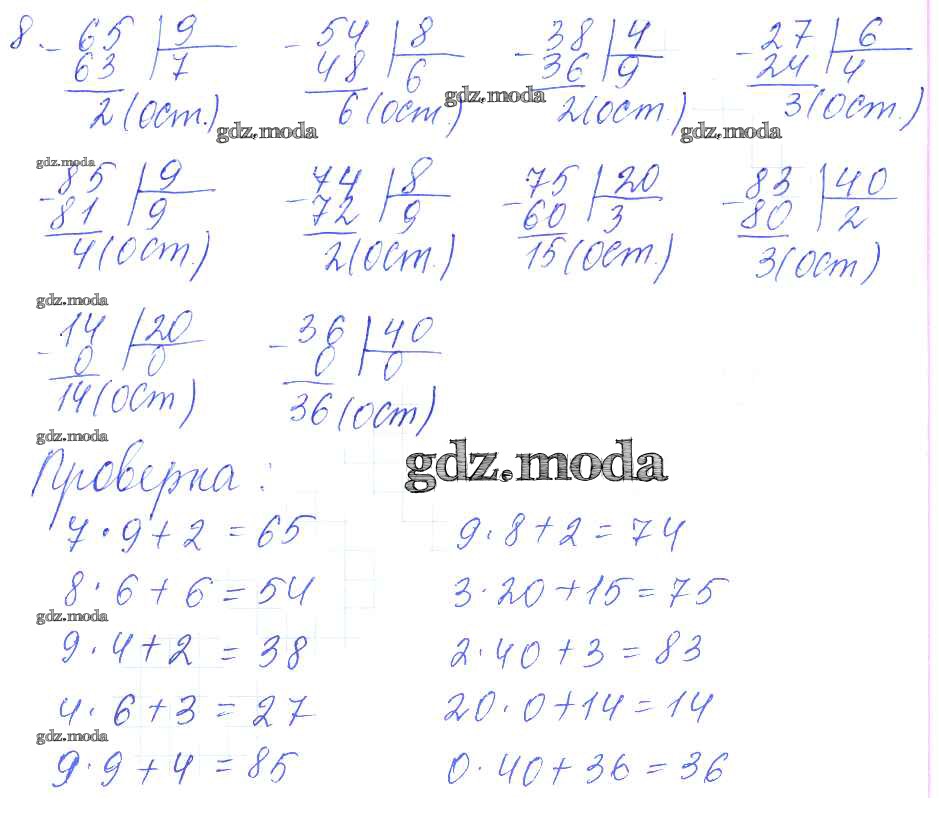 8. - 65 | 9 - 54 | 8 - 38 | 4 - 27 | 6
63 | 7 48 | 6 36 | 9 24 | 4
2 (ост.) 6 (ост.) 2 (ост.) 3 (ост.)
gdz.moda
gdz.moda gdz.moda
gdz.moda
- 85 | 9 - 74 | 8 - 75 | 20 - 83 | 40
81 | 9 72 | 9 60 | 3 80 | 2
4 (ост.) 2 (ост.) 15 (ост.) 3 (ост)
gdz.moda
- 14 | 20 - 36 | 40
0 | 0 0 | 0
14 (ост) 36 (ост)
gdz.moda
Проверка: gdz.moda
7 · 9 + 2 = 65 9 · 8 + 2 = 74
8 · 6 + 6 = 54 3 · 20 + 15 = 75
gdz.moda
9 · 4 + 2 = 38 2 · 40 + 3 = 83
4 · 6 + 3 = 27 20 · 0 + 14 = 14
gdz.moda
9 · 9 + 4 = 85 0 · 40 + 36 = 36